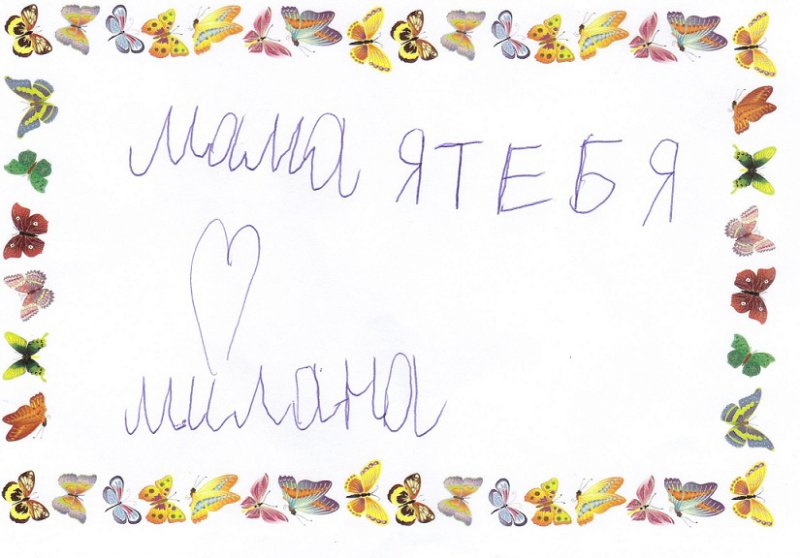 мама ЯТЕБЯ
♡
милана